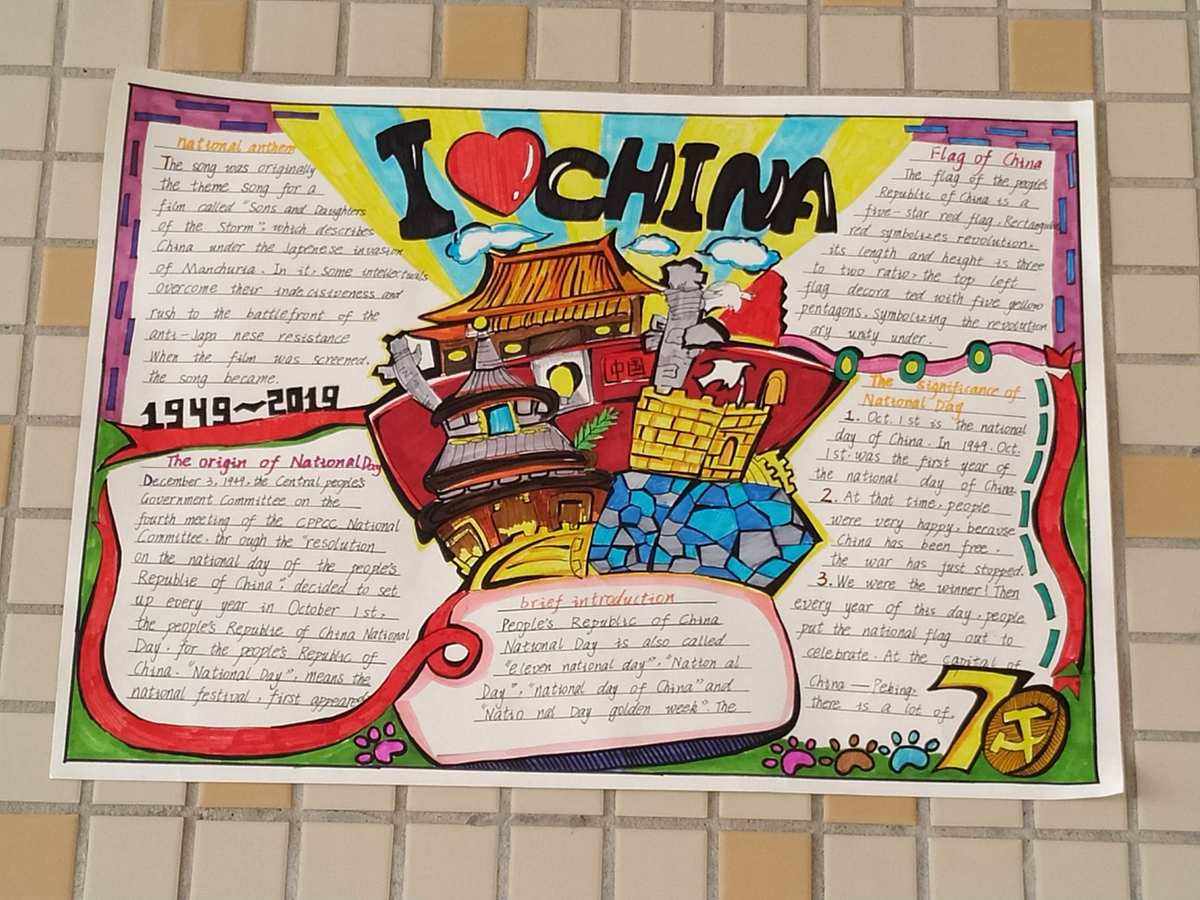 I CHINA
National anthem
The song was originally
the theme song for a
film called "Sons and Daughters
of the Storm", which describes
China under the Japenese invasion
of Manchuria. In it, some intellectuals
overcome their indecisiveness and
rush to the battlefront of the
anti-Japa nese resistance
When the film was screened,
the song became.
1949~2019
Flag of China
The flag of the people's
Republic of China is a
five-star red flag, Rectangular
red symbolizes revolution.
its length and height is three
to two ratio, the top left
flag decora ted with five yellow
pentagons, symbolizing the revolution
ary unity under.
中国
The origin of National Day
December 3, 1949, the Central people's
Government Committee on the
fourth meeting of the CPPCC National
Committee, thr ough the "resolution
on the national day of the people's
Republic of China", decided to set
up every year in October 1st,
the people's Republic of China National
Day, for the people's Republic of
China. "National Day", means the
national festival, first appeared
brief introduction
People's Republic of China
National Day is also called
"eleven national day", "Nation al
Day", "national day of China" and
"Natio nal Day golden week". The
The significance of
National Day
1. Oct. 1st is the national
day of China. In 1949. Oct.
1st. was the first year of
the national day of China.
2. At that time, people
were very happy, because
China has been free.
the war has just stopped.
3. We were the winner! Then
every year of this day, people
put the national flag out to
celebrate. At the capital of
China — Peking,
there is a lot of.
70